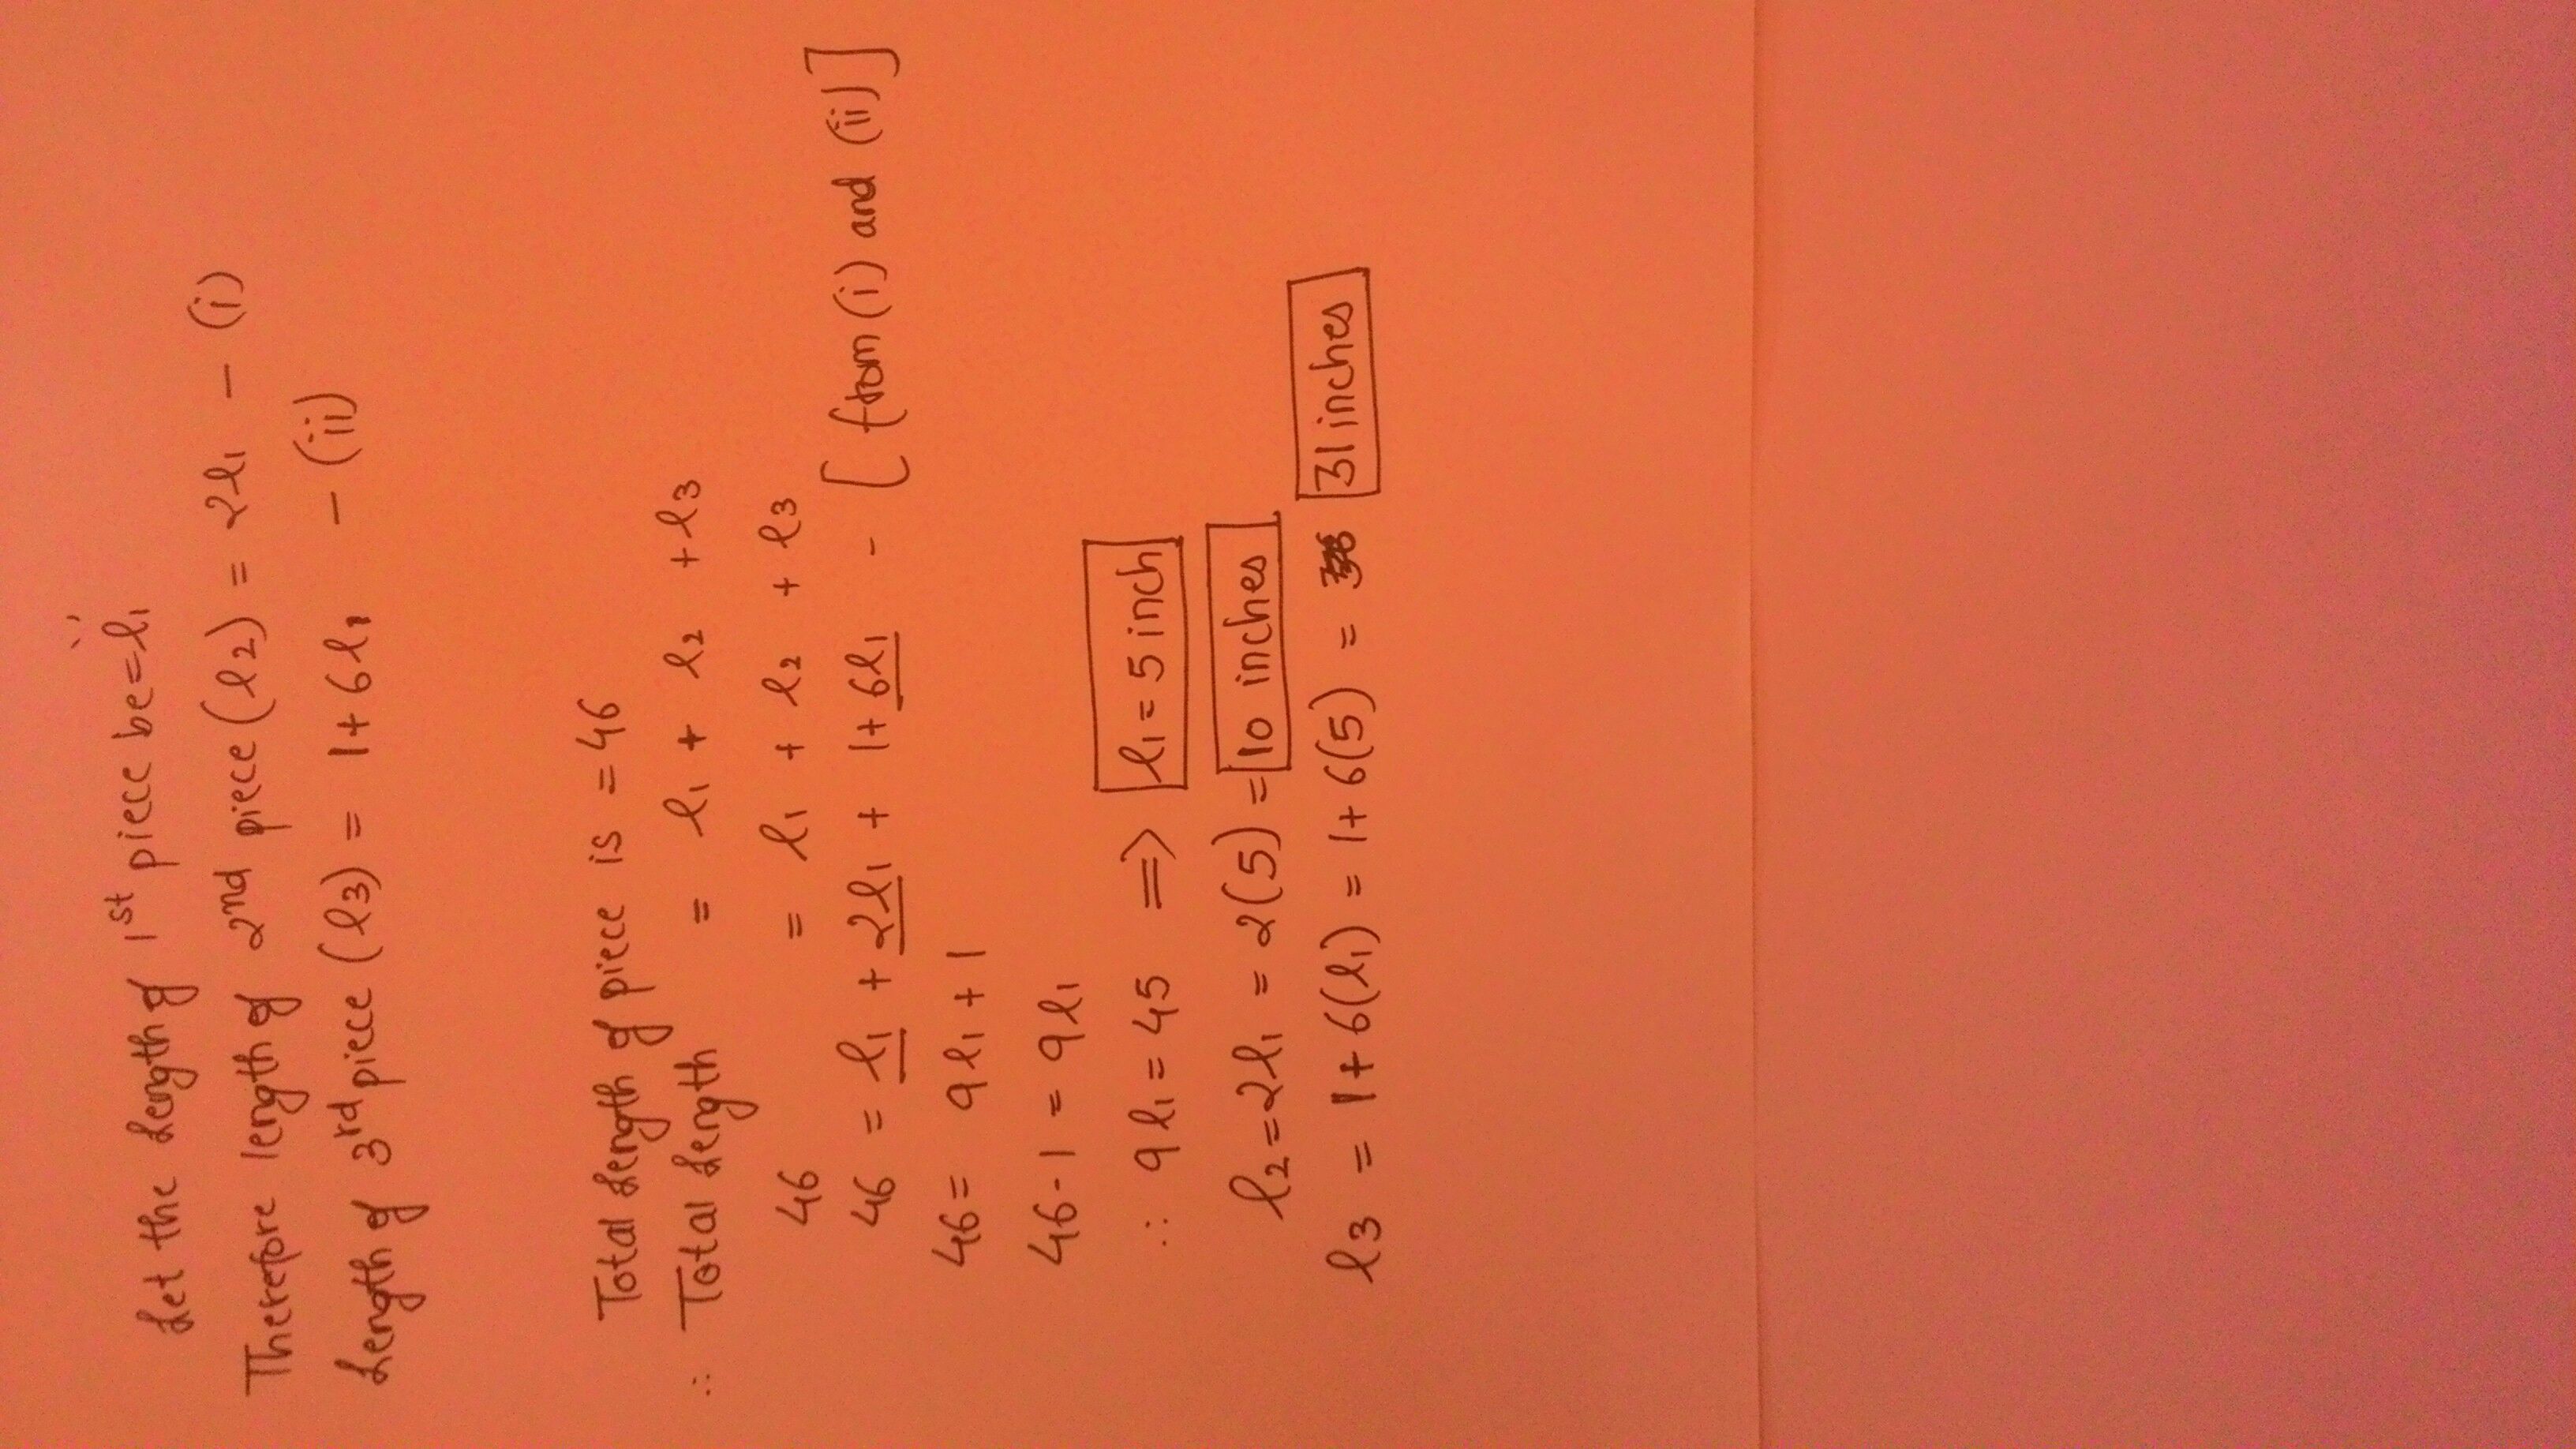 Let the length of 1st piece be = l1
Therefore length of 2nd piece (l2) = 2l1 - (i)
Length of 3rd piece (l3) = 1 + 6l1 - (ii)
Total Length of piece is = 46
∴ Total Length = l1 + l2 + l3
46 = l1 + l2 + l3
46 = l1 + 2l1 + 1 + 6l1 - [from (i) and (ii)]
46 = 9l1 + 1
46 - 1 = 9l1
∴ 9l1 = 45 ⇒ l1 = 5 inch
l2 = 2l1 = 2(5) = 10 inches
l3 = 1 + 6(l1) = 1 + 6(5) = 31 inches